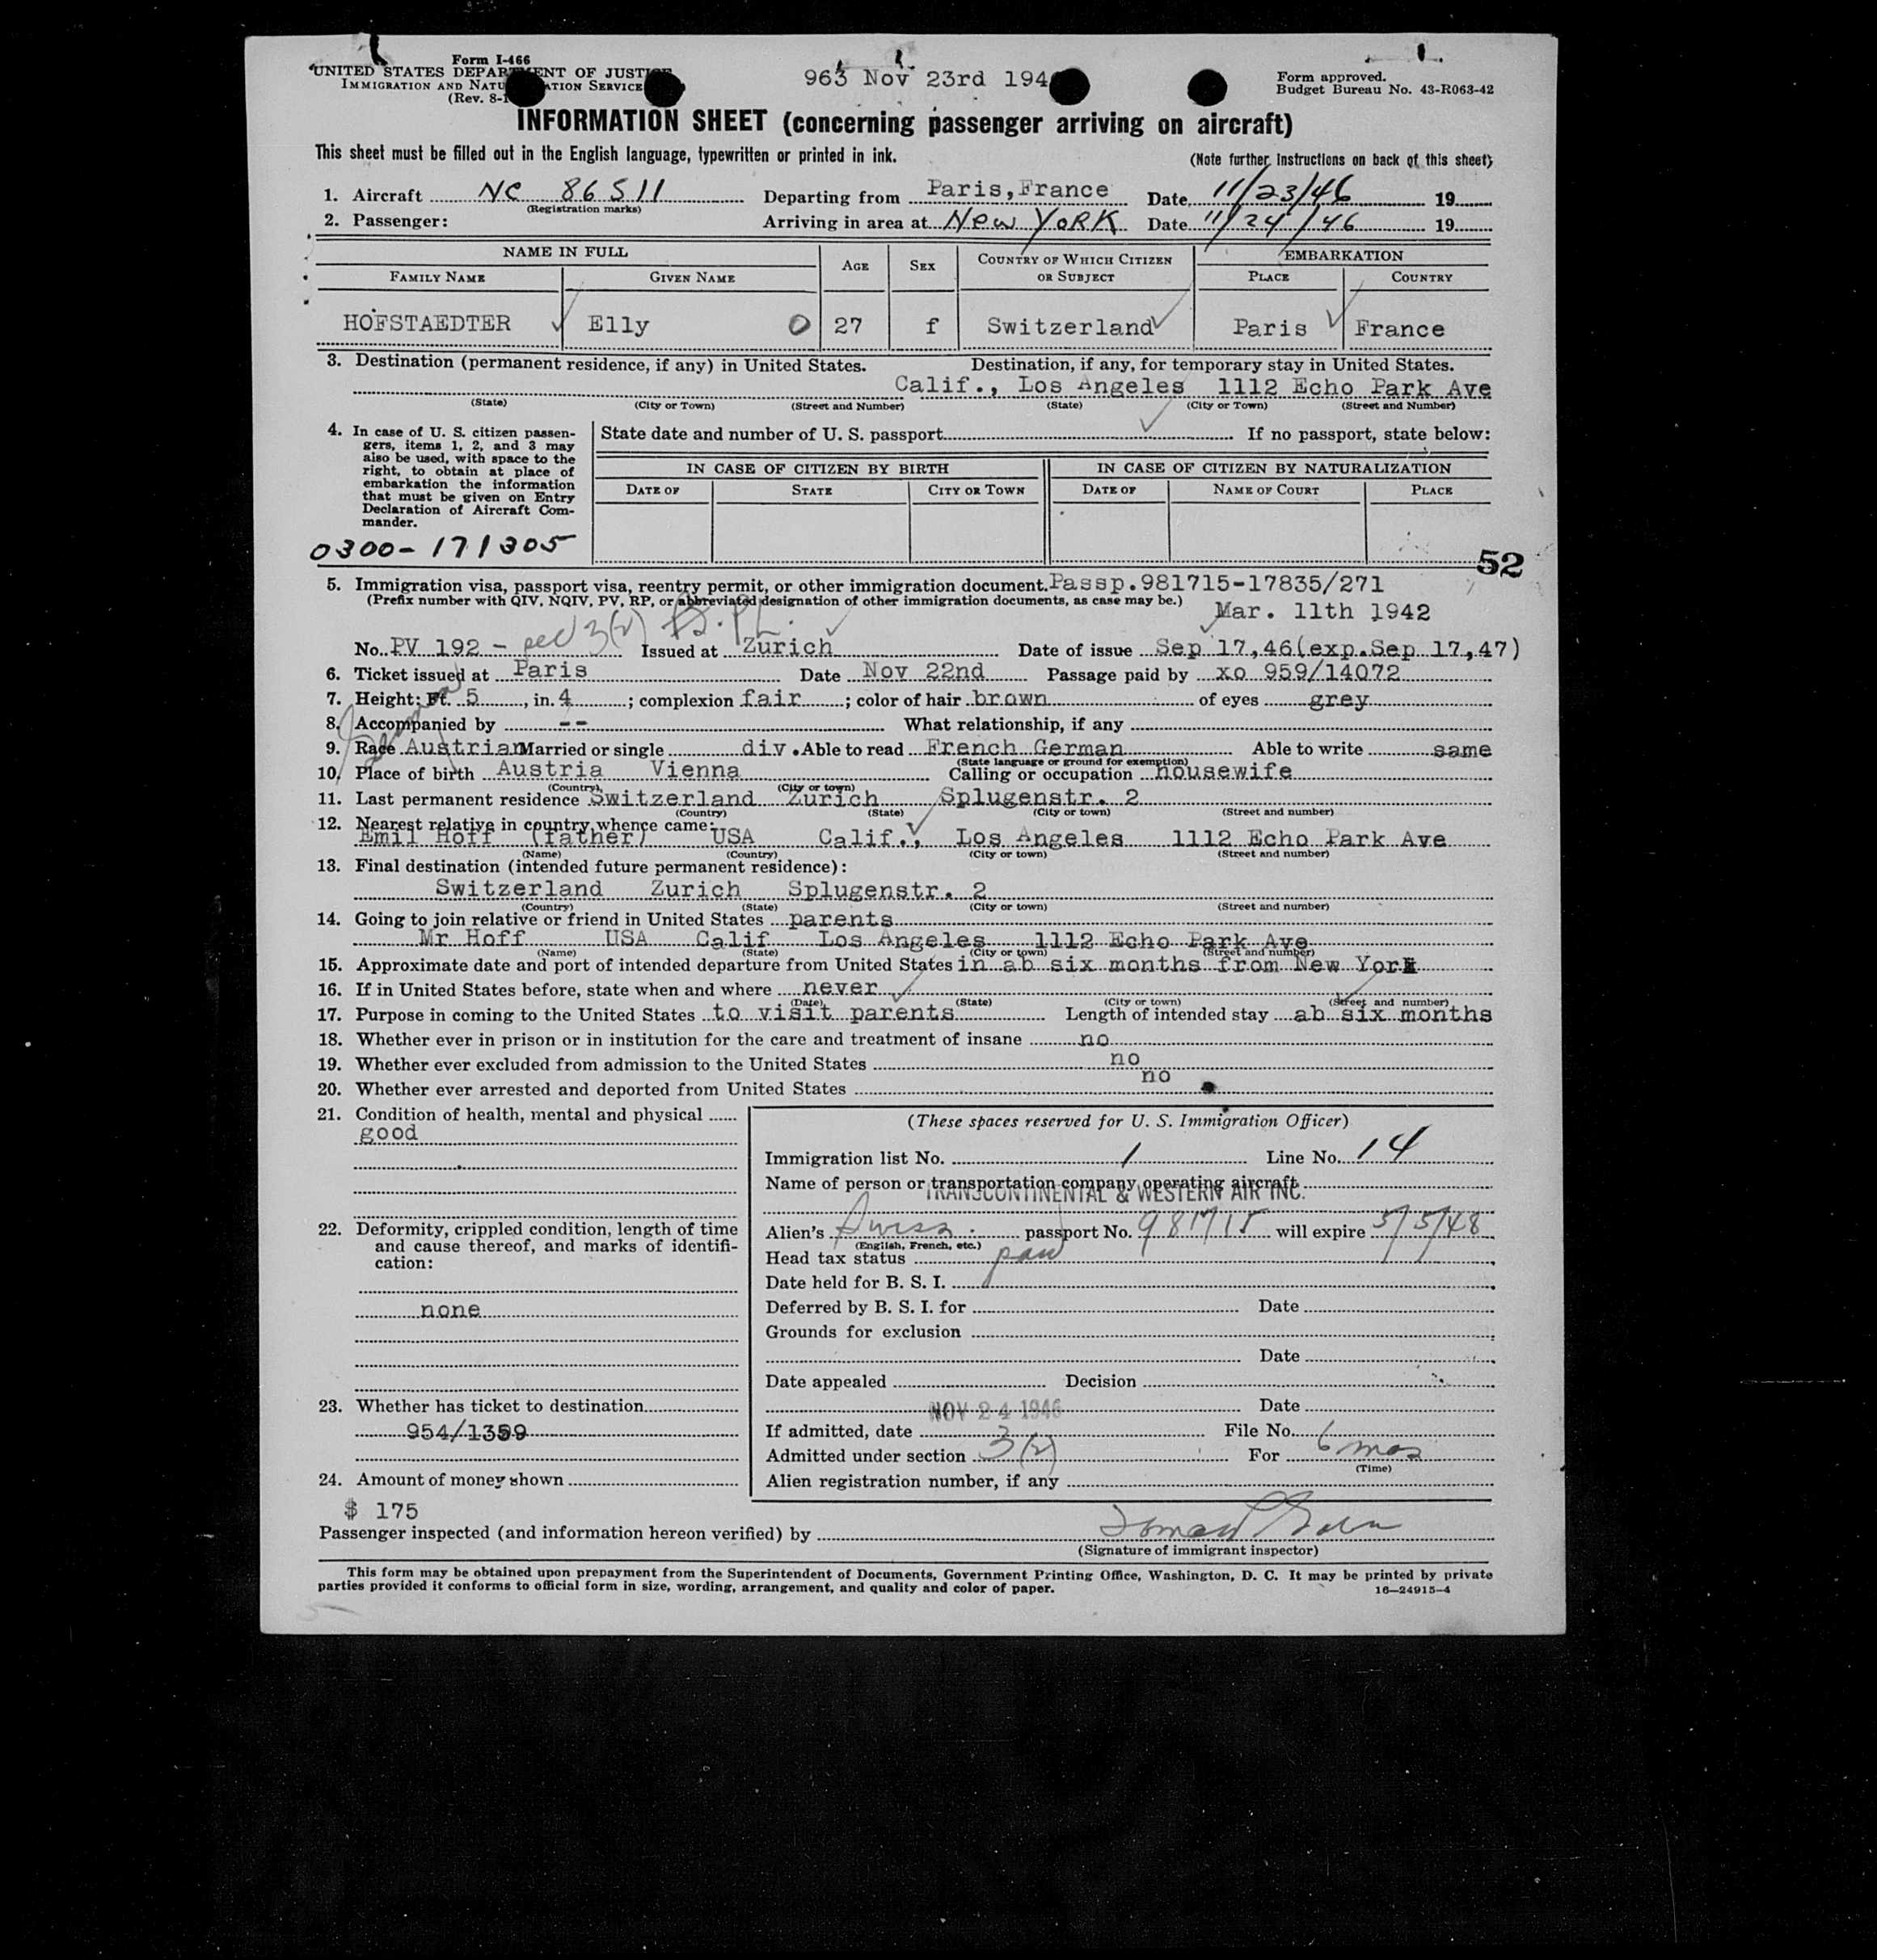 Form I-466
UNITED STATES DEPARTMENT OF JUSTICE
IMMIGRATION AND NATURALIZATION SERVICE
(Rev. 8-1
963 Nov 23rd 194
Form approved.
Budget Bureau No. 43-R063-42
INFORMATION SHEET (concerning passenger arriving on aircraft)
This sheet must be filled out in the English language, typewritten or printed in ink.
(Note further instructions on back of this sheet)
1. Aircraft NC 86511 Departing from Paris, France Date 11/23/46 19
(Registration marks)
2. Passenger: Arriving in area at New YORK Date 11/24/46 19
NAME IN FULL AGE SEX COUNTRY OF WHICH CITIZEN OR SUBJECT EMBARKATION
FAMILY NAME GIVEN NAME PLACE COUNTRY
HOFSTAEDTER Elly 0 27 f Switzerland Paris France
3. Destination (permanent residence, if any) in United States. Destination, if any, for temporary stay in United States.
Calif., Los Angeles 1112 Echo Park Ave
(State) (City or Town) (Street and Number) (State) (City or Town) (Street and Number)
4. In case of U. S. citizen passen-
gers, items 1, 2, and 3 may
also be used, with space to the
right, to obtain at place of
embarkation the information
that must be given on Entry
Declaration of Aircraft Com-
mander.
0300-171305
State date and number of U. S. passport If no passport, state below:
IN CASE OF CITIZEN BY BIRTH IN CASE OF CITIZEN BY NATURALIZATION
DATE OF STATE CITY OR TOWN DATE OF NAME OF COURT PLACE
52
5. Immigration visa, passport visa, reentry permit, or other immigration document. Passp.981715-17835/271
(Prefix number with QIV, NQIV, PV, RP, or abbreviated designation of other immigration documents, as case may be.)
Mar. 11th 1942
No. PV 192 - sec 3(2) Issued at Zurich Date of issue Sep 17,46(exp.Sep 17,47)
6. Ticket issued at Paris Date Nov 22nd Passage paid by xo 959/14072
7. Height: Ft. 5, in. 4; complexion fair; color of hair brown of eyes grey
8. Accompanied by -- What relationship, if any
9. Race Austrian Married or single div. Able to read French German Able to write same
(State language or ground for exemption)
10. Place of birth Austria Vienna Calling or occupation housewife
(Country) (City or town)
11. Last permanent residence Switzerland Zurich Splugenstr. 2
(Country) (State) (City or town) (Street and number)
12. Nearest relative in country whence came:
Emil Hoff (father) USA Calif., Los Angeles 1112 Echo Park Ave
(Name) (Country) (City or town) (Street and number)
13. Final destination (intended future permanent residence):
Switzerland Zurich Splugenstr. 2
(Country) (State) (City or town) (Street and number)
14. Going to join relative or friend in United States parents
Mr Hoff USA Calif Los Angeles 1112 Echo Park Ave
(Name) (State) (City or town) (Street and number)
15. Approximate date and port of intended departure from United States in ab six months from New York
16. If in United States before, state when and where never
(Date) (State) (City or town) (Street and number)
17. Purpose in coming to the United States to visit parents Length of intended stay ab six months
18. Whether ever in prison or in institution for the care and treatment of insane no
19. Whether ever excluded from admission to the United States no
20. Whether ever arrested and deported from United States no
21. Condition of health, mental and physical
good
22. Deformity, crippled condition, length of time
and cause thereof, and marks of identifi-
cation:
none
23. Whether has ticket to destination
954/1359
24. Amount of money shown
$ 175
(These spaces reserved for U. S. Immigration Officer)
Immigration list No. 1 Line No. 14
Name of person or transportation company operating aircraft
TRANSCONTINENTAL & WESTERN AIR INC.
Alien's Swiss passport No. 981715 will expire 3/5/48
(English, French, etc.)
Head tax status paid
Date held for B. S. I.
Deferred by B. S. I. for Date
Grounds for exclusion
Date
Date appealed Decision
NOV 24 1946 Date
If admitted, date File No.
Admitted under section 3(2) For 6 mos
(Time)
Alien registration number, if any
Passenger inspected (and information hereon verified) by
(Signature of immigrant inspector)
This form may be obtained upon prepayment from the Superintendent of Documents, Government Printing Office, Washington, D. C. It may be printed by private
parties provided it conforms to official form in size, wording, arrangement, and quality and color of paper.
16—24915-4